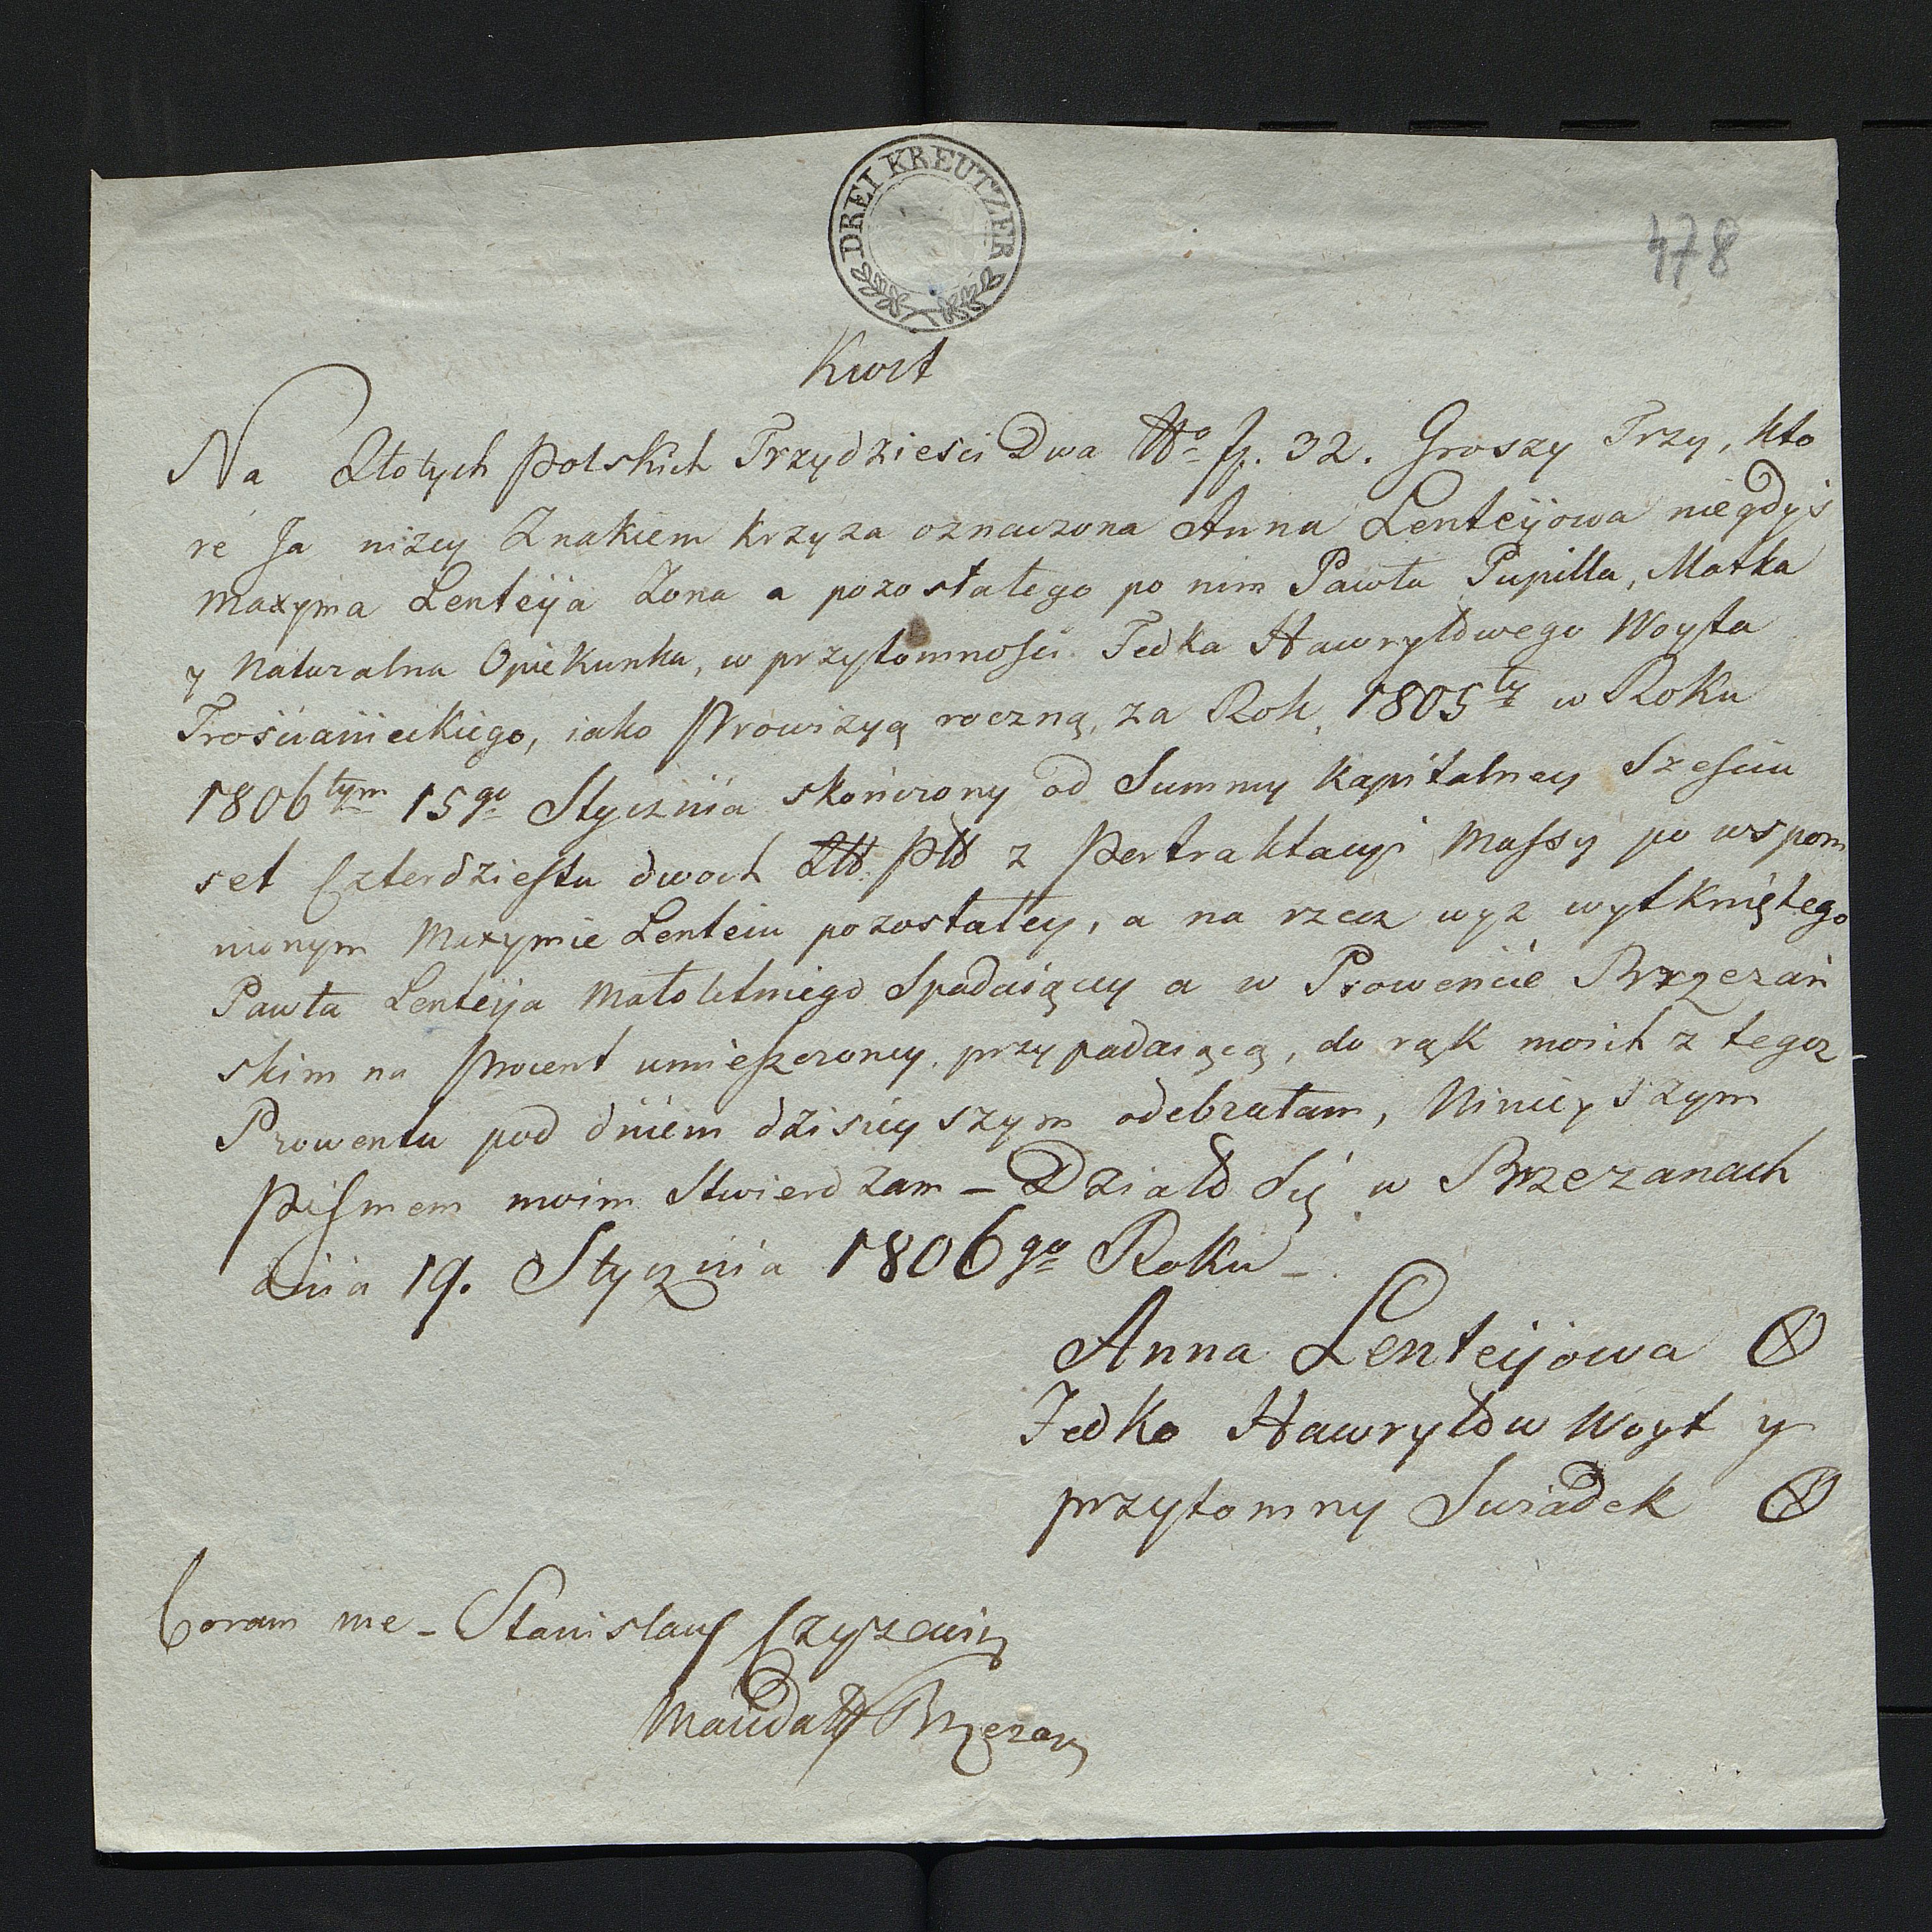 DREI KREUTZER
478
Kwit
Na Złotych Polskich Trzydzieści Dwa No fp. 32. Groszy Trzy, kto
re Ja niżey Znakiem krzyża oznaczona Anna Lenteijowa niegdyś
Maxyma Lenteija Żona a pozostałego po nim Pawła Pupilla, Matka
y Naturalna Opiekunka, w przytomności Fedka Hawryłowego Woyta
Trościanieckiego, iako Prowizyą roczną, za Rok 1805ty w Roku
1806tym 15go Stycznia skończony od Summy kapitalney Sześciu
set Czterdziestu dwoch Złł Plł z Pertraktacyi Massy po wspom
nionym Maxymie Lenteiu pozostałey, a na rzecz wyż wytkniętego
Pawła Lenteija Małoletniego Spadaiącey a w Prowencie Brzezań
skim na Procent umieszczoney przypadaiącą, do rąk moich z tegoz
Prowentu pod dniem dzisieyszym odebrałam, Ninieyszym
Pismem moim Stwierdzam – Działo Się w Brzezanach
dnia 19. Stycznia 1806go Roku –
Anna Lenteijowa X
Fedko Hawryłow Woyt y
przytomny Swiadek X
Coram me – Stanislaus
Mandatt Brzezan